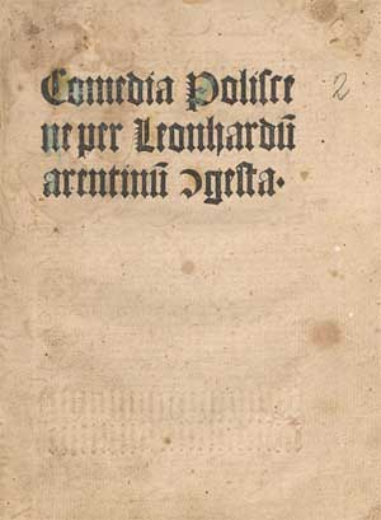 Comedia Poliſce
ne per Leonhardū
arentinū ↄgeſta.
2